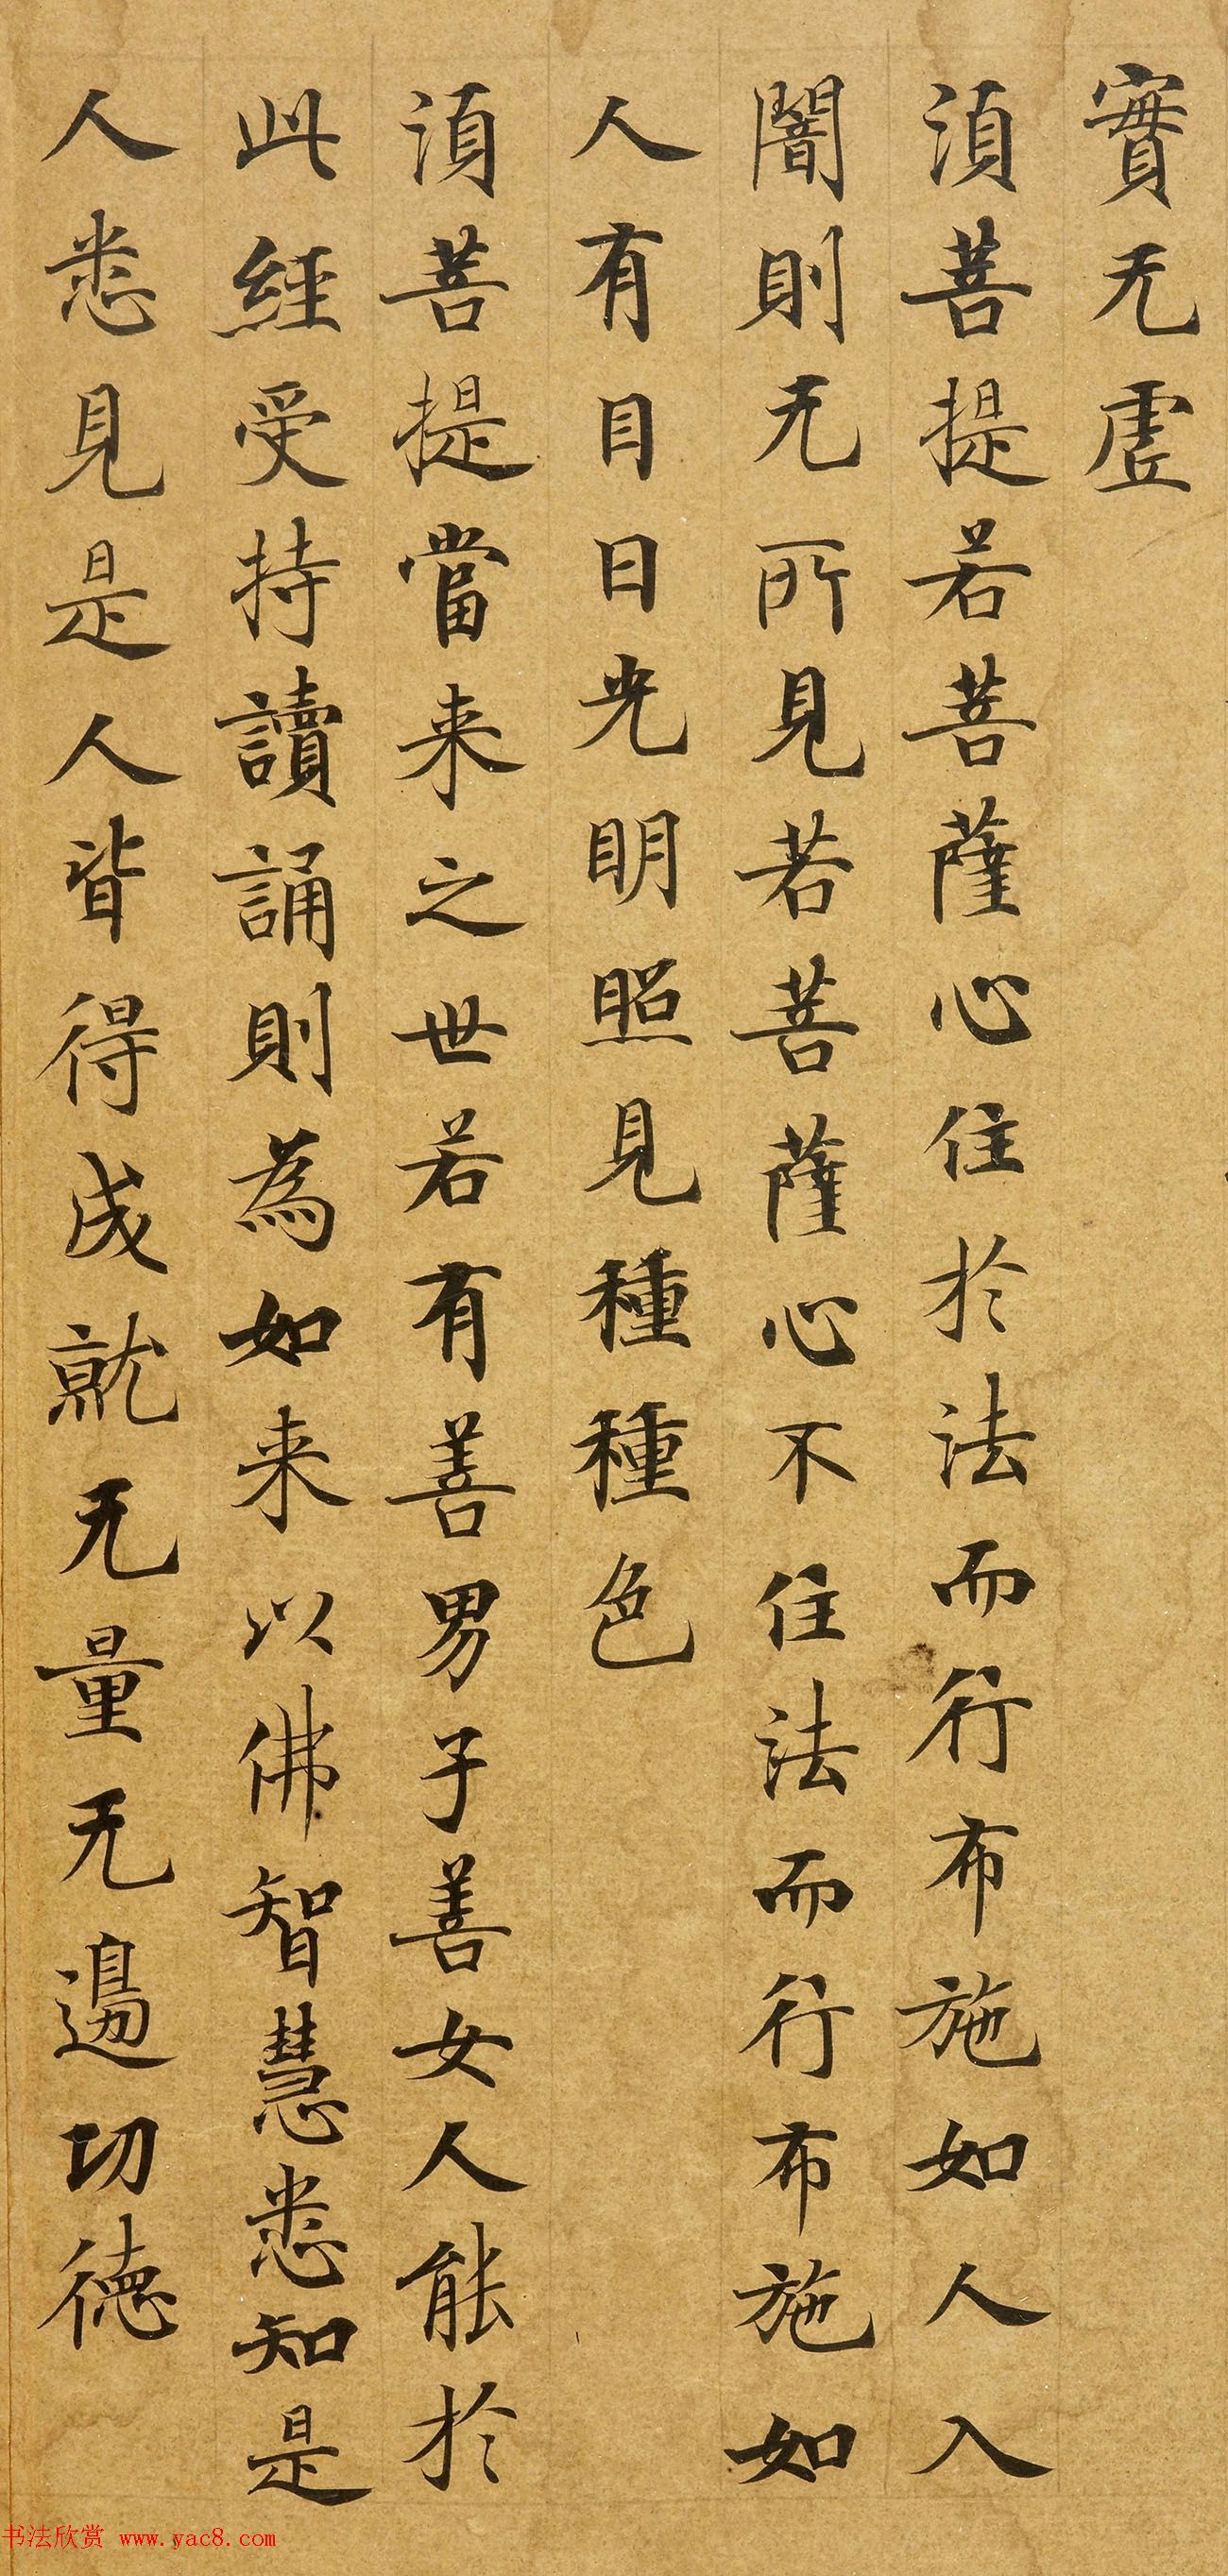 實无虛
須菩提若菩薩心住於法而行布施如人入
闇則无所見若菩薩心不住法而行布施如
人有目日光明照見種種色
須菩提當来之世若有善男子善女人能於
此經受持讀誦則為如来以佛智慧悉知是
人悉見是人皆得成就无量无邊功德
书法欣赏 www.yac8.com